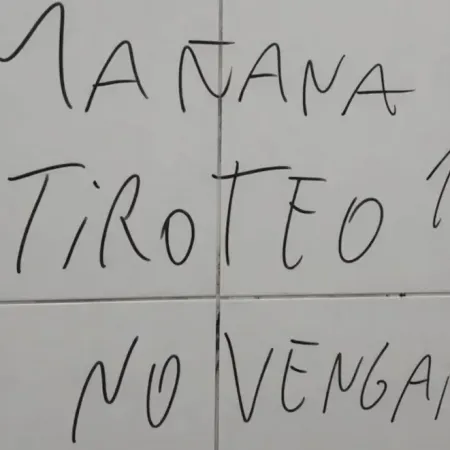 MAÑANA
TIROTEO
NO VENGAN